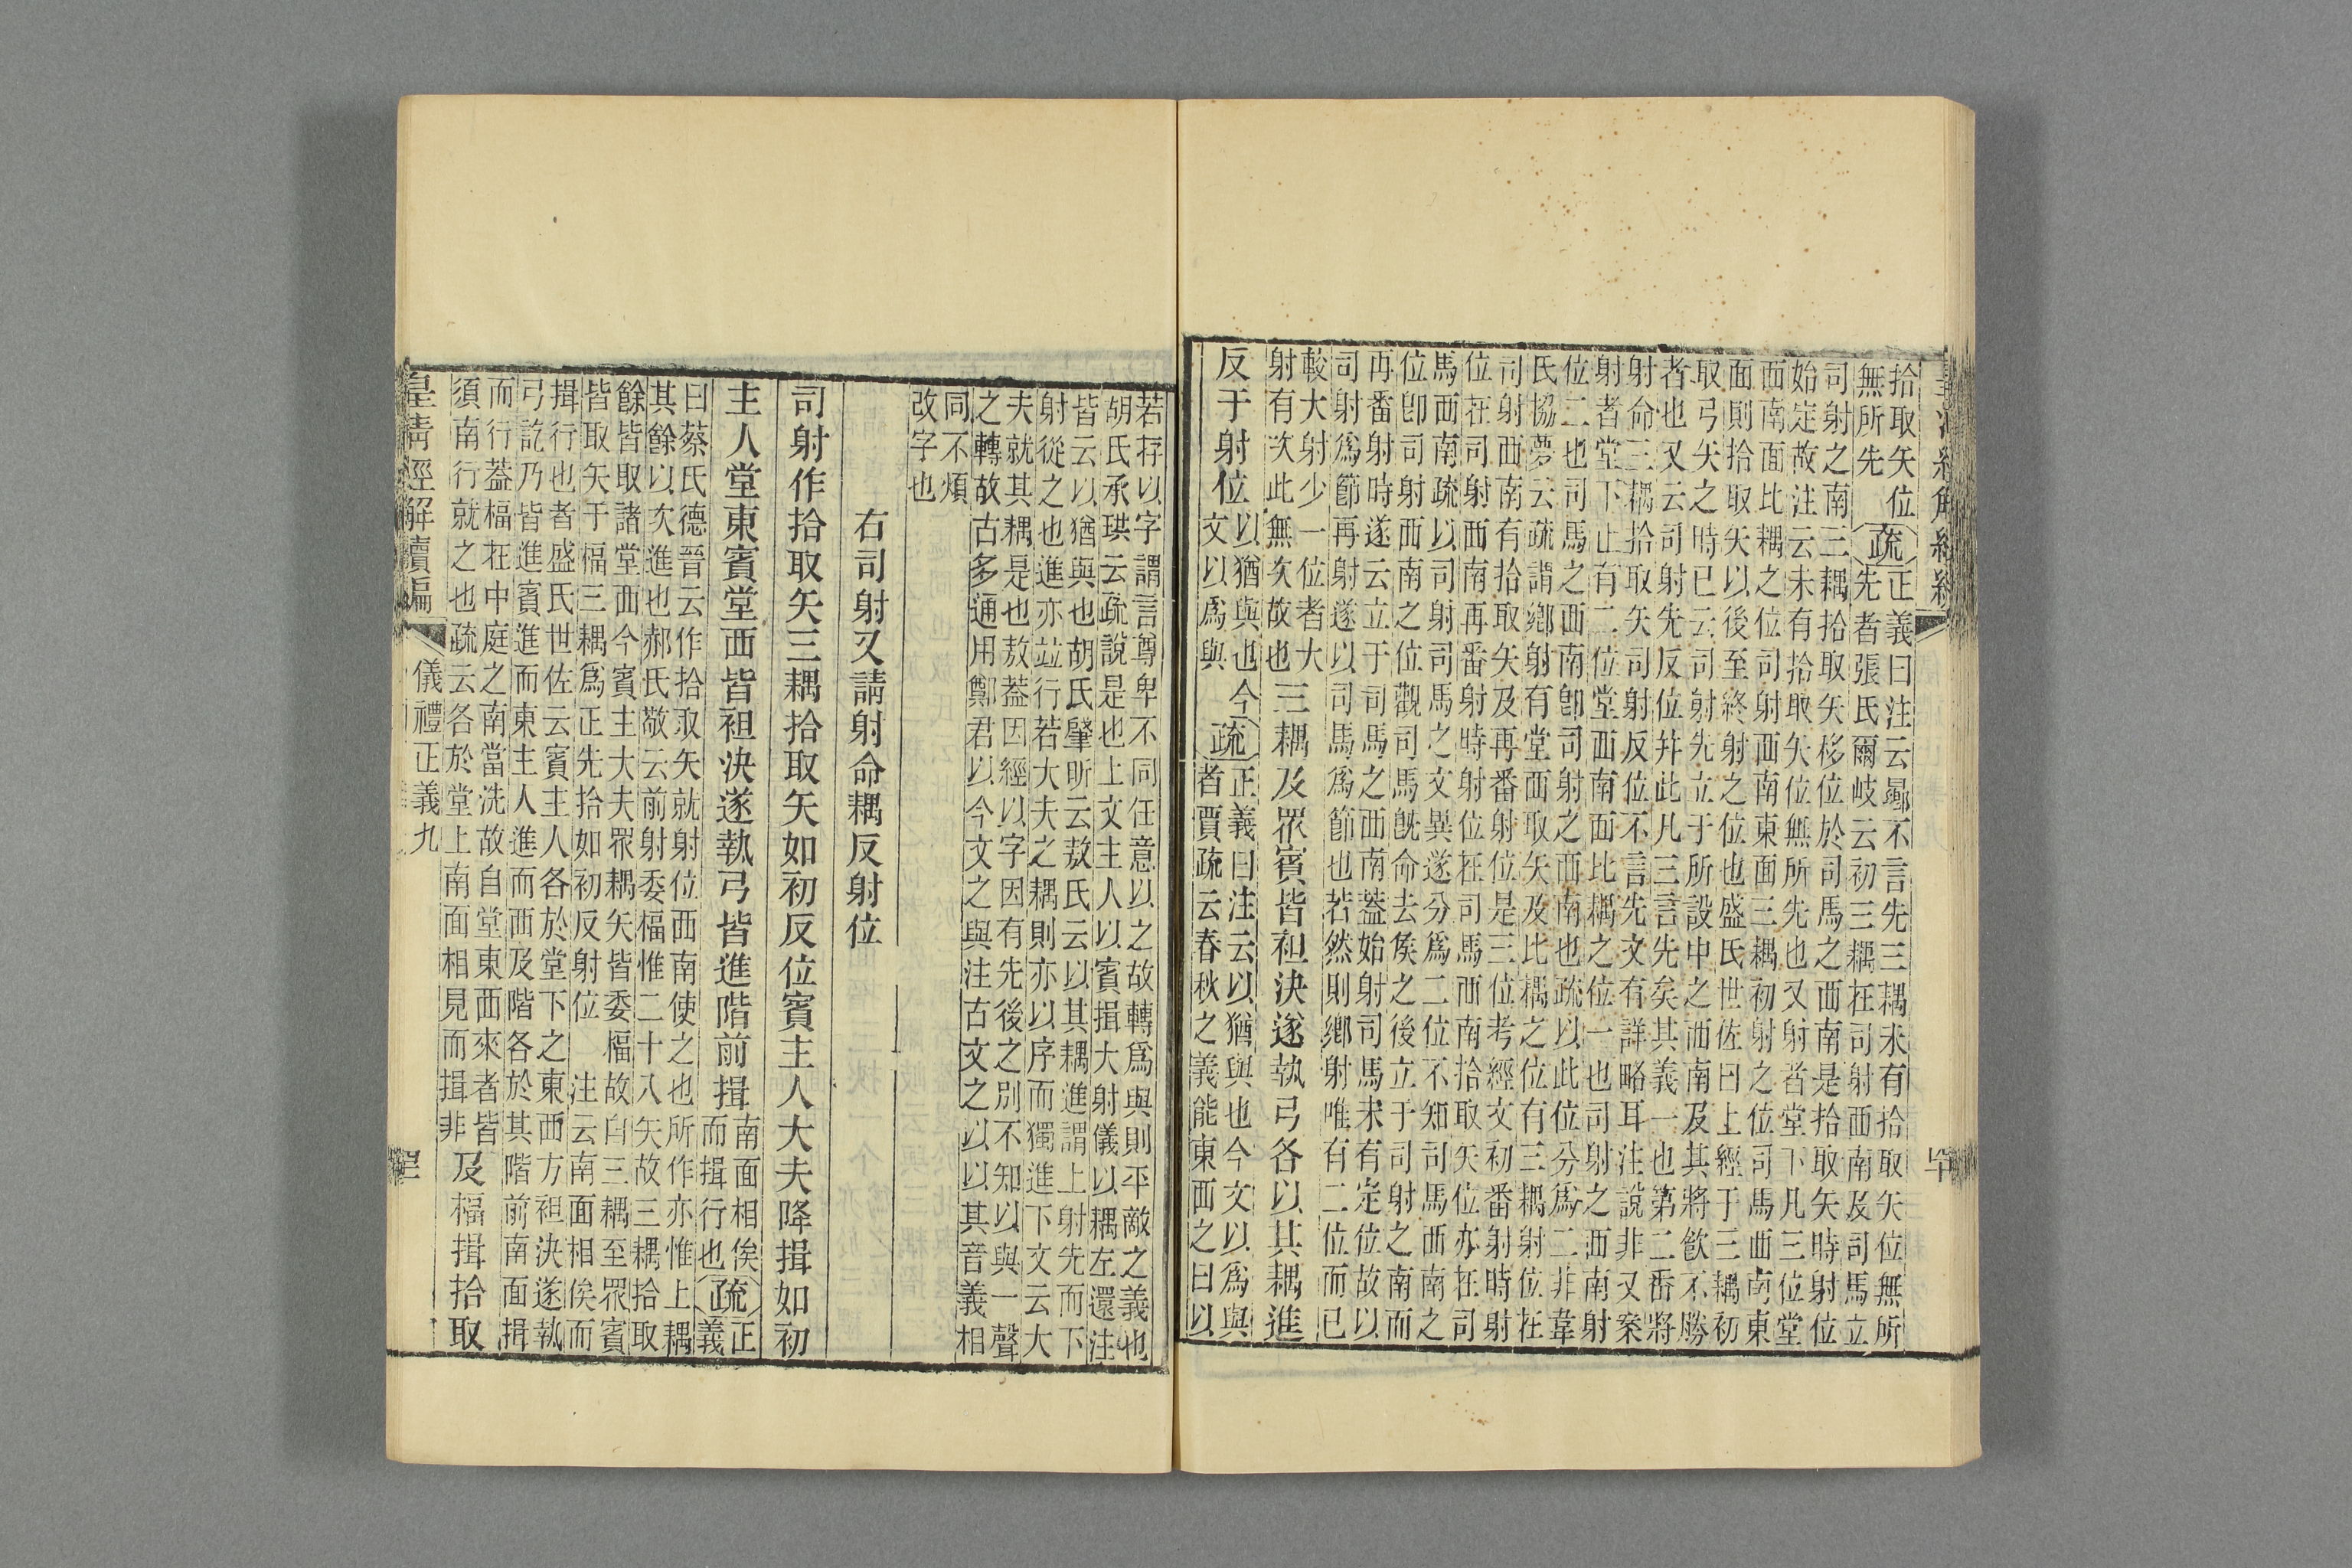 皇清經解續編
拾取矢位
無所先
疏
正義曰注云曏不言先三耦未有拾取矢位無所
先者張氏爾岐云初三耦在司射西南及司馬立
司射之南三耦拾取矢移位於司馬之西南是拾取矢時射位
始定故注云未有拾取矢位無所先也又射者堂下凡三位堂
西南面比耦之位司射西南東面三耦初射之位司馬西南東
面則拾取矢以後至終射之位也盛氏世佐曰上經于三耦初
取弓矢之時已云司射先立于所設中之西南及其將飲不勝
者也又云司射先反位幷此凡三言先矣其義一也第二番將
射命三耦拾取矢司射反位不言先文有詳略耳注說非又案
射者堂下止有二位堂西南面比耦之位一也司射之西南射
位二也司馬之西南卽司射之西南也疏以此位分爲二非韋
氏協夢云疏謂鄉射有堂西取矢及比耦之位有三耦射位在
司射西南有拾取矢及再番射位是三位考經文初番射時射
位在司射西南再番射時射位在司馬西南拾取矢位亦在司
馬西南疏以司射司馬之文異遂分爲二位不知司馬西南之
位卽司射西南之位觀司馬旣命去侯之後立于司射之南而
再番射時遂云立于司馬之西南蓋始射司馬未有定位故以
司射爲節再射遂以司馬爲節也若然則鄉射唯有二位而已
較大射少一位者大
射有次此無次故也
三耦及眾賓皆袒決遂執弓各以其耦進
反于射位
以猶與也今
文以爲與
疏
正義曰注云以猶與也今文以爲與
者賈疏云春秋之義能東西之曰以
若存以字謂言尊卑不同任意以之故轉爲與則平敵之義也
胡氏承珙云疏說是也上文主人以賓揖大射儀以耦左還注
皆云以猶與也胡氏肇昕云敖氏云以其耦進謂上射先而下
射從之也進亦竝行若大夫之耦則亦以序而獨進下文云大
夫就其耦是也敖蓋因經以字因有先後之別不知以與一聲
之轉故古多通用鄭君以今文之與注古文之以以其音義相
同不煩
改字也
右司射又請射命耦反射位
司射作拾取矢三耦拾取矢如初反位賓主人大夫降揖如初
主人堂東賓堂西皆袒決遂執弓皆進階前揖
南面相俟
而揖行也
疏
正
義
曰蔡氏德晉云作拾取矢就射位西南使之也所作亦惟上耦
其餘以次進也郝氏敬云前射委楅惟二十八矢故三耦拾取
餘皆取諸堂西今賓主大夫眾耦矢皆委楅故自三耦至眾賓
皆取矢于楅三耦爲正先拾如初反射位 注云南面相俟而
揖行也者盛氏世佐云賓主人各於堂下之東西方袒決遂執
弓訖乃皆進賓進而東主人進而西及階各於其階前南面揖
而行蓋楅在中庭之南當洗故自堂東西來者皆
須南行就之也疏云各於堂上南面相見而揖非
及楅揖拾取
皇清經解續編
儀禮正義九